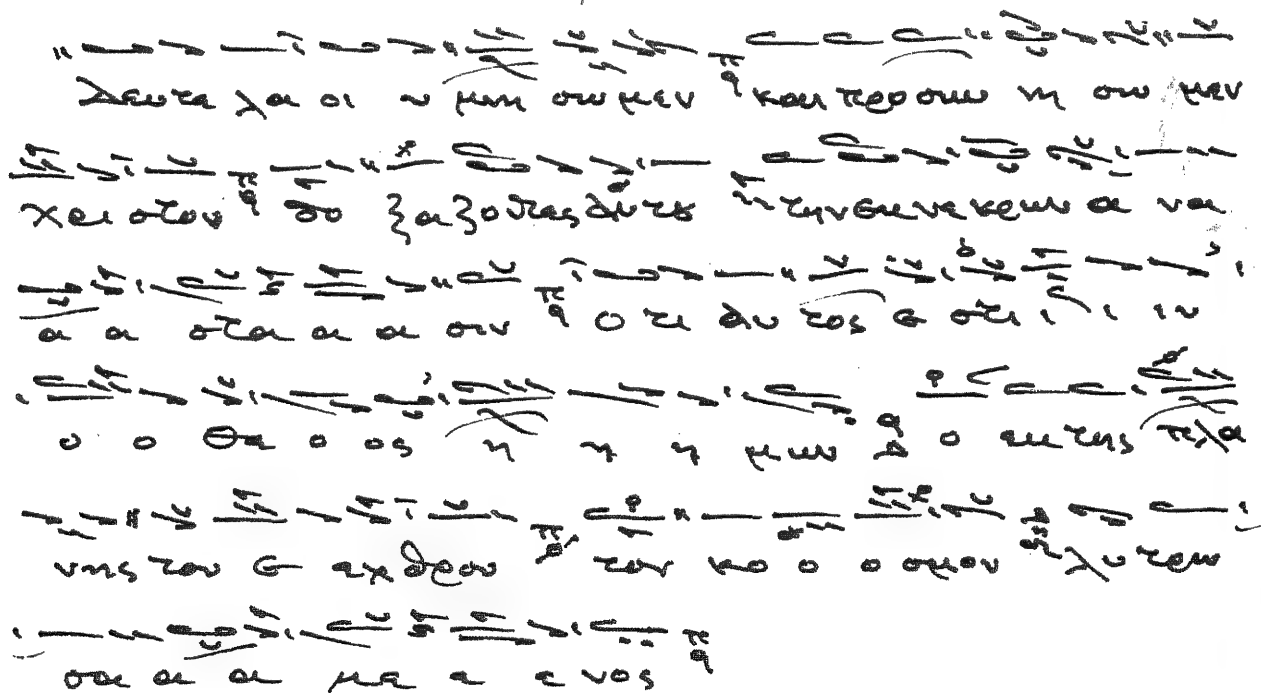 Δευτε λα οι υ μνη σω μεν και προ σκυ νη σω μεν
Χρι στον δο ξα ζο ντες αυ του την εκ νε κρων α να
α α στα α α σιν Ο τι αυ τος ε στι ι ι ιν
ο ο Θε ο ος η η η μων ο εκ της πλα
νης του ε εχ θρου τον κο ο ο σμον λυ τρω
σα α α με ε ε νος